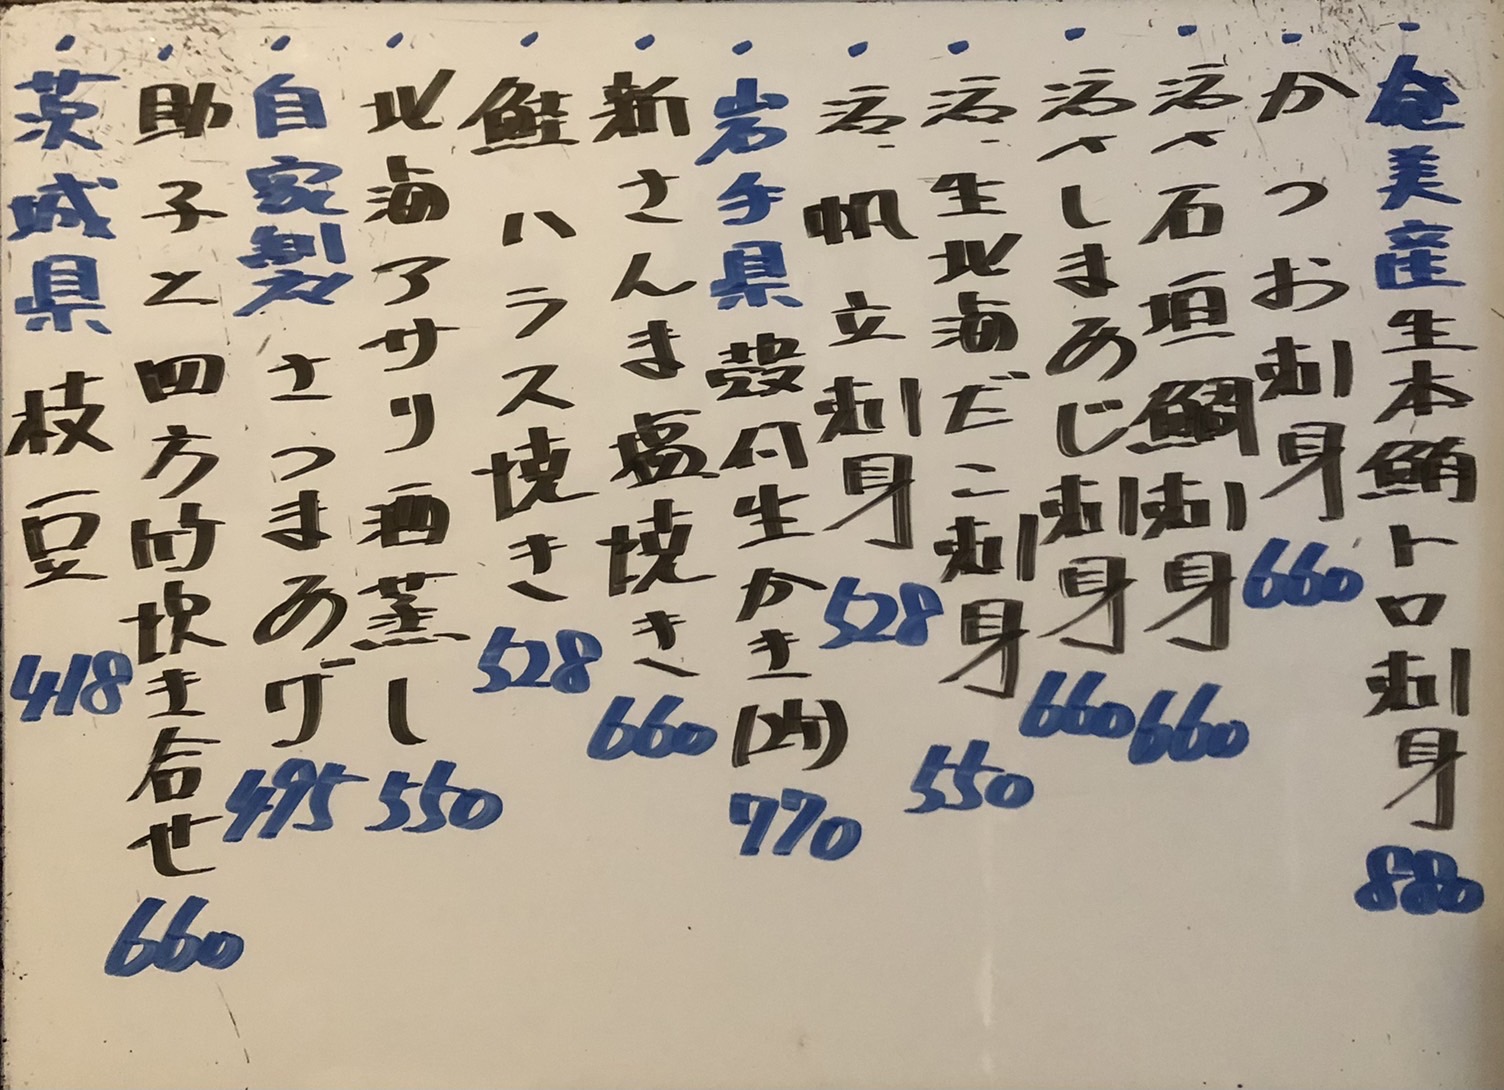 ・奄美産生本鮪トロ刺身 880
・かつお刺身 660
・活〆石垣鯛刺身 660
・活〆しまあじ刺身 660
・活生北海だこ刺身 550
・活帆立刺身 528
・岩手県殻付生かき(2ケ) 770
・新さんま塩焼き 660
・鮭ハラス焼き 528
・北海アサリ酒蒸し 550
・自家製さつまあげ 495
・助子と四方竹炊き合せ 660
・茨城県枝豆 418